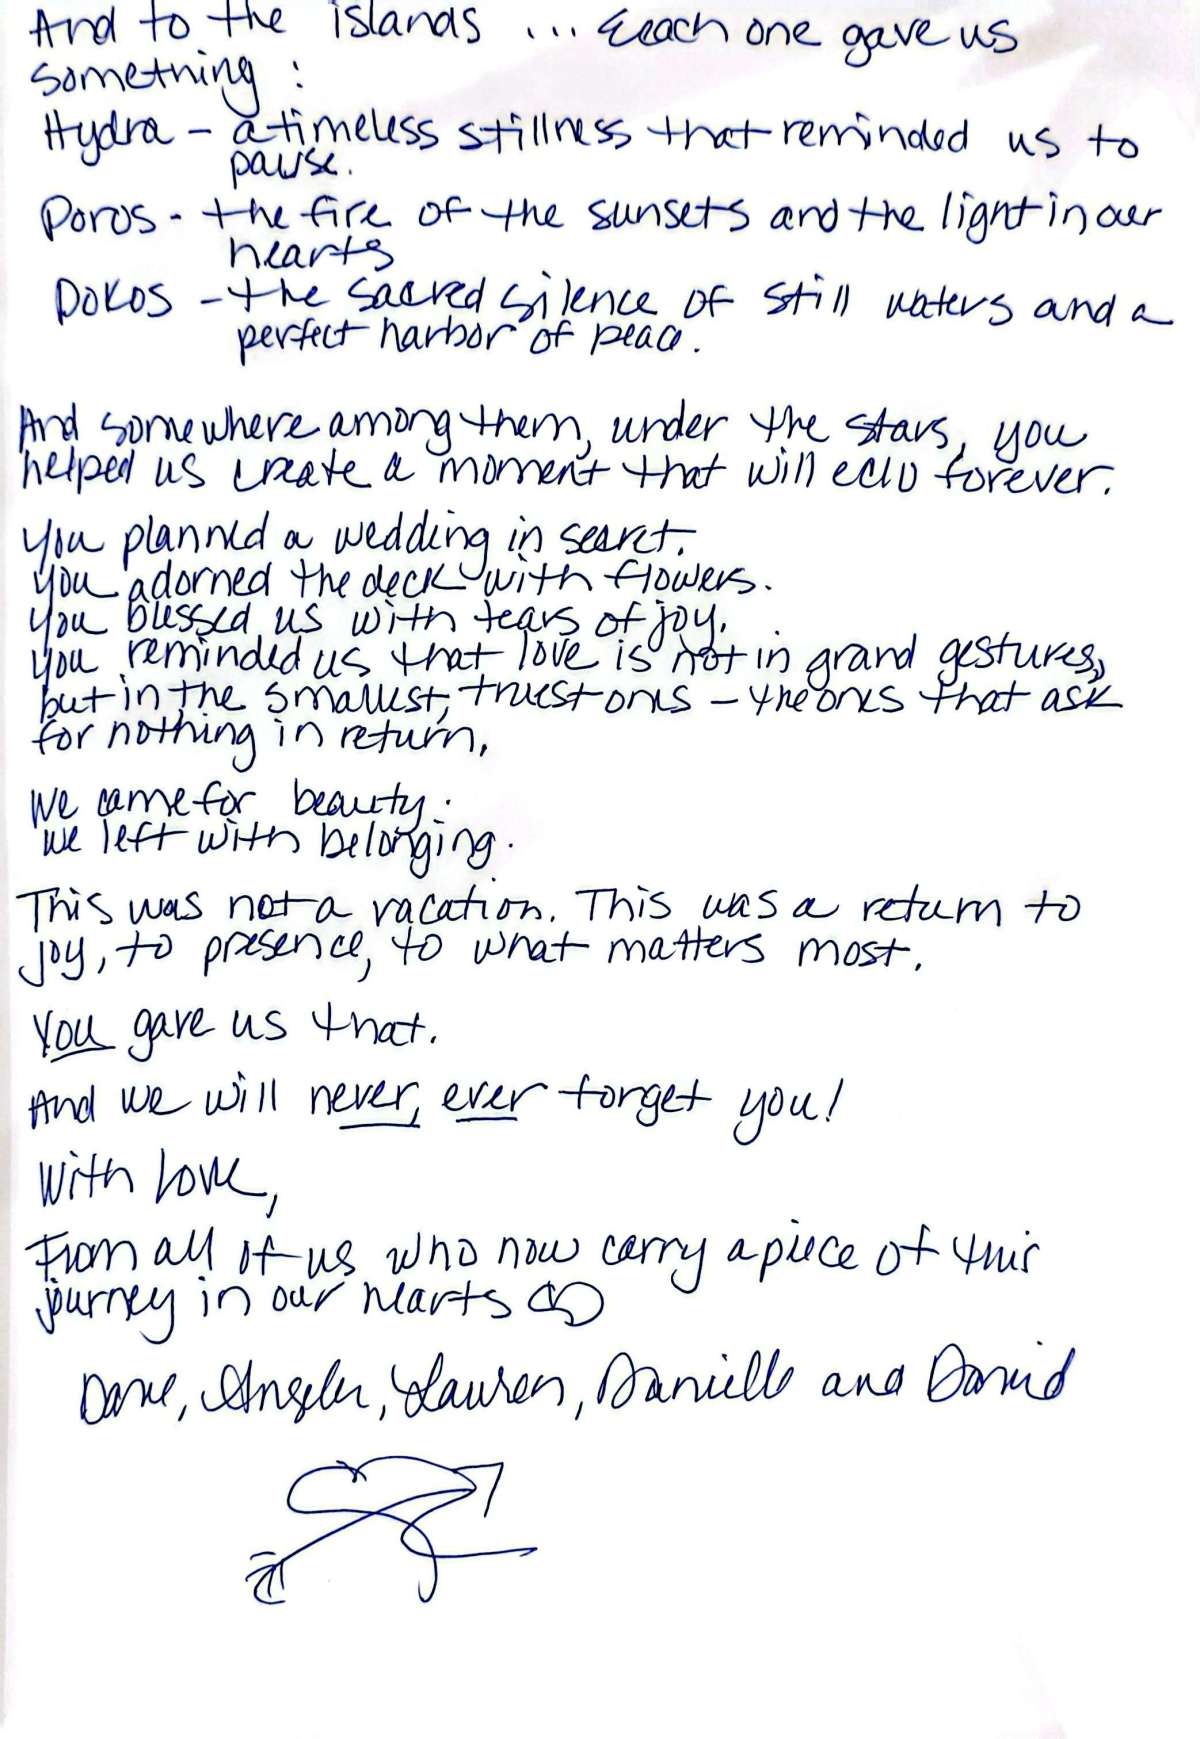 And to the islands ... Each one gave us
something:
Hydra - a timeless stillness that reminded us to
pause.
Poros - the fire of the sunsets and the light in our
hearts
Dokos - the sacred silence of still waters and a
perfect harbor of peace.
And somewhere among them, under the stars, you
helped us create a moment that will echo forever.
You planned a wedding in secret.
You adorned the deck with flowers.
You blessed us with tears of joy.
You reminded us that love is not in grand gestures,
but in the smallest, truest ones - the ones that ask
for nothing in return.
We came for beauty.
We left with belonging.
This was not a vacation. This was a return to
joy, to presence, to what matters most.
You gave us that.
And we will never, ever forget you!
With Love,
From all of us who now carry a piece of this
journey in our hearts
Dave, Angela, Lauren, Danielle and David